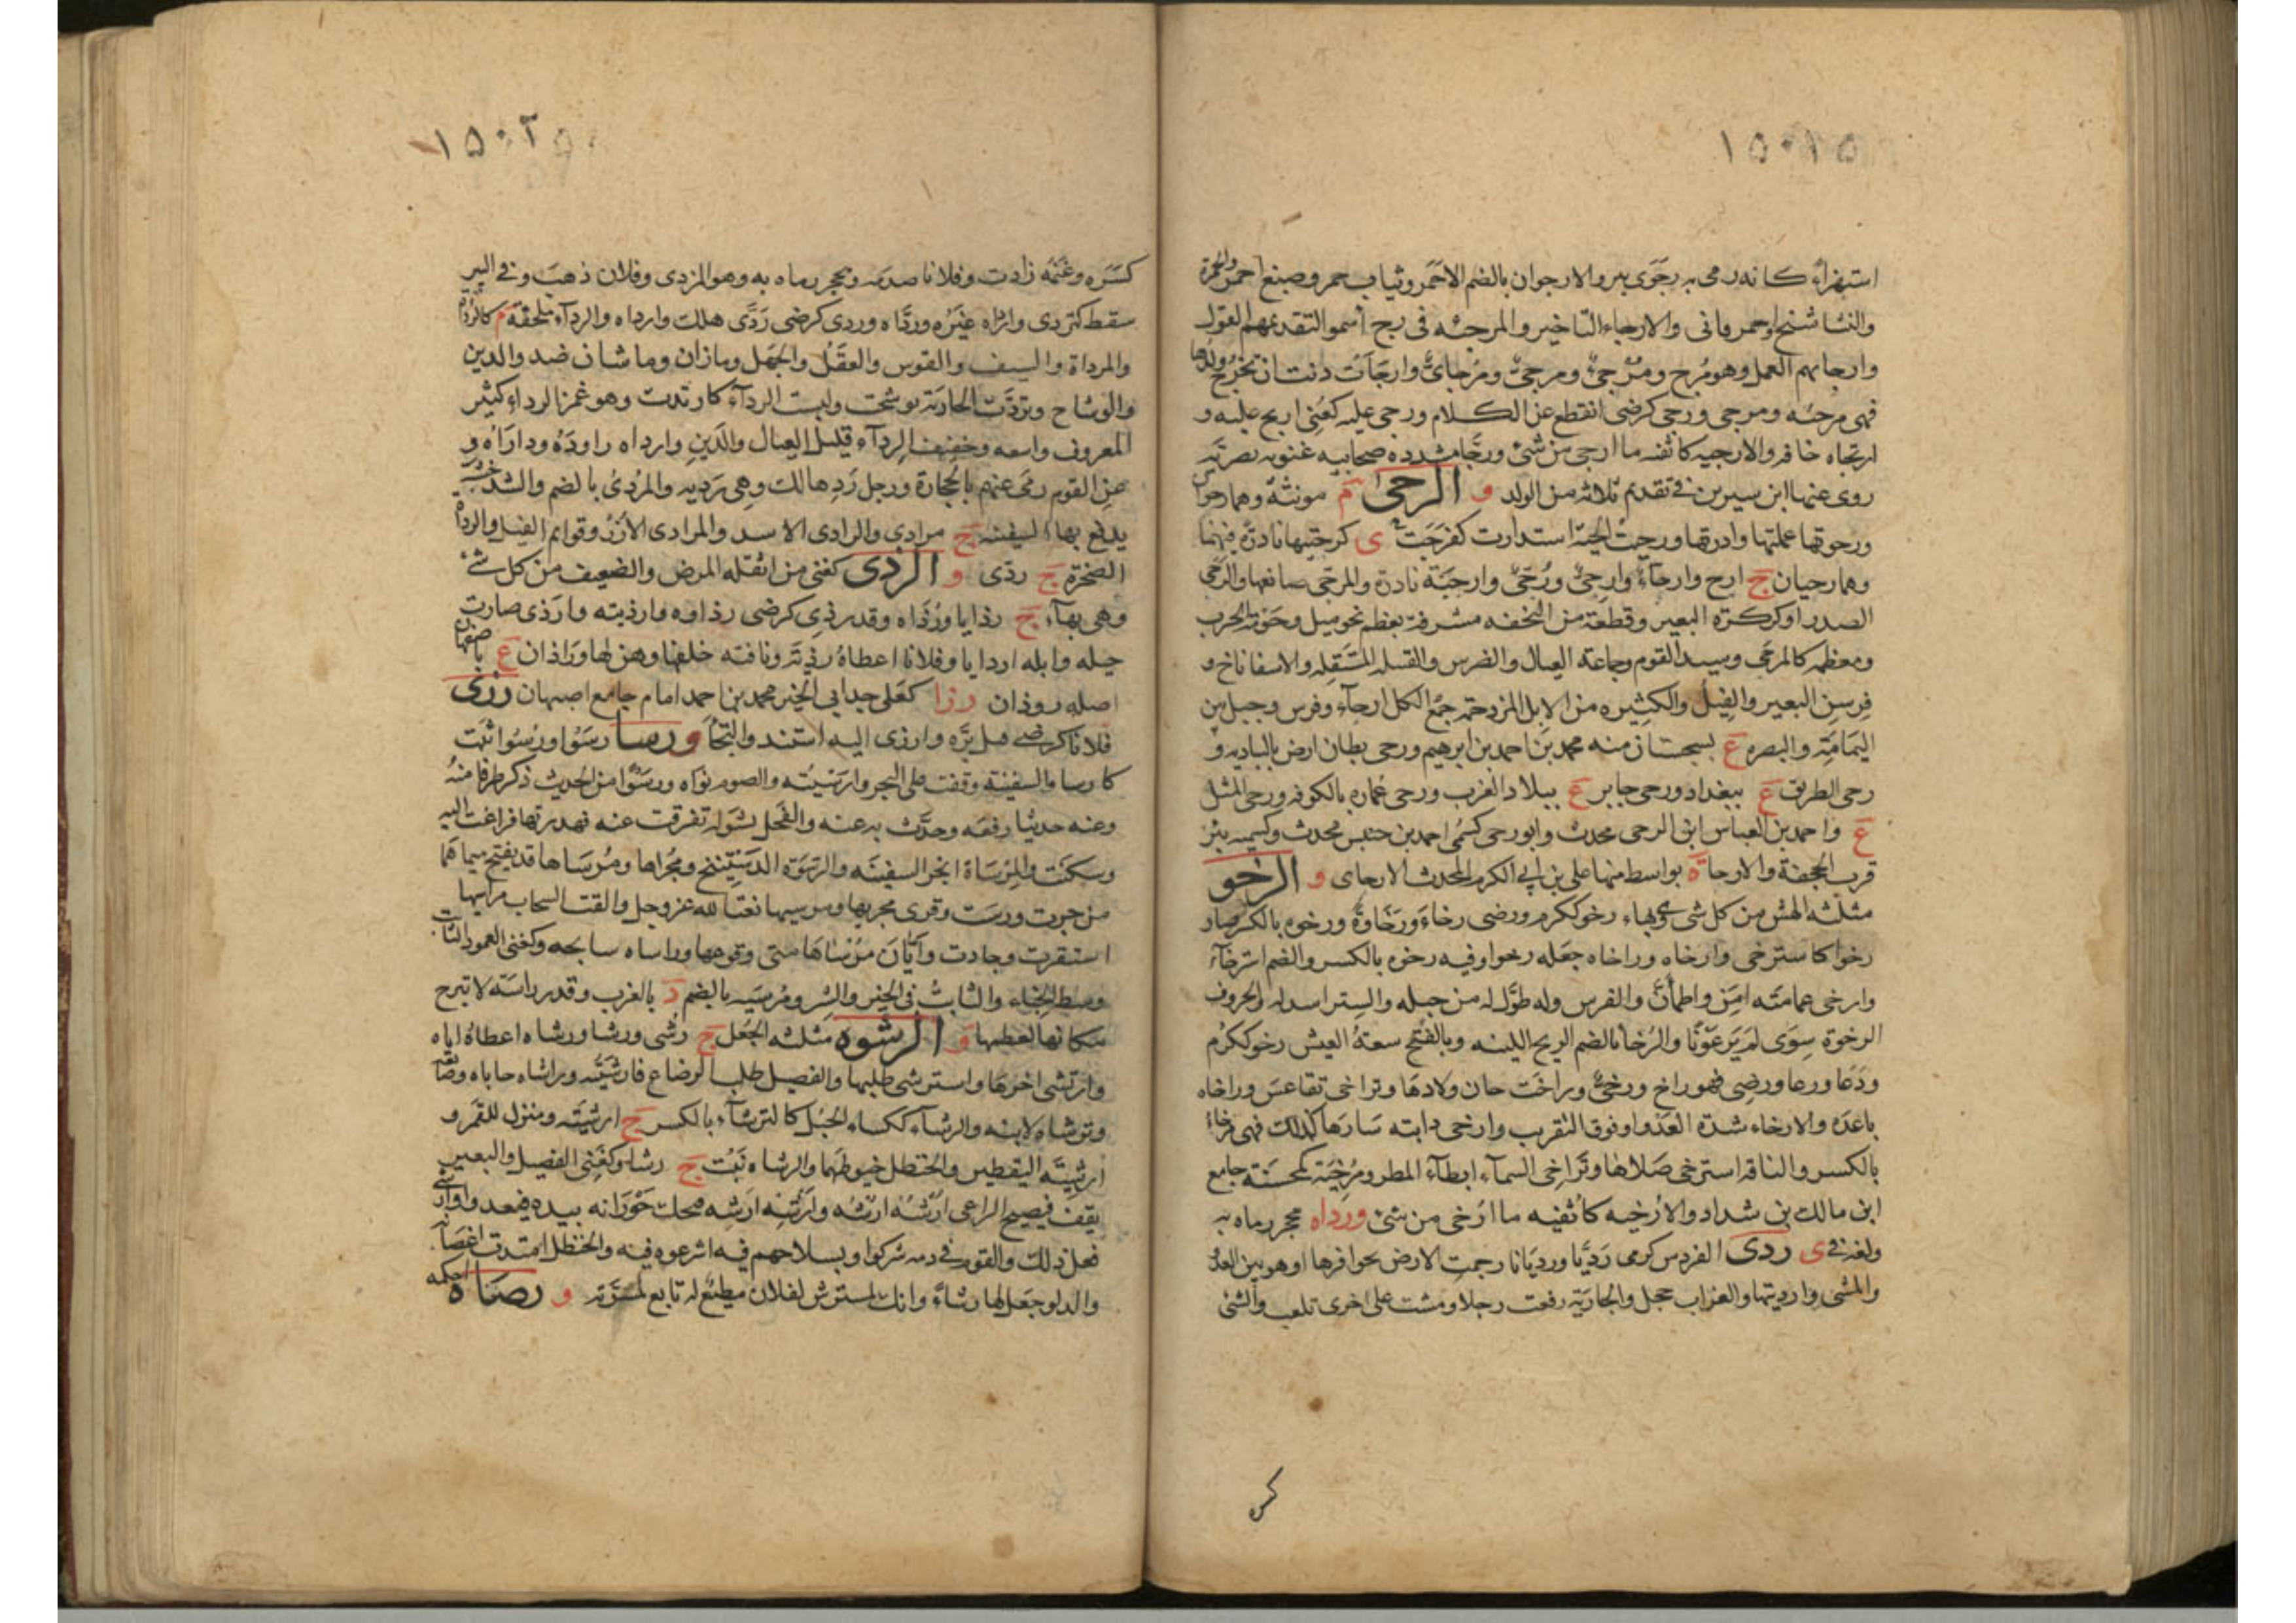 ١٥٠١٥
استهزاء كانه رمى به رجوى بير والارجوان بالضم الاحمر وثياب حمر وصبغ احمر والحمرة
والنشاشتج واحمر وانى والارجاء التاخير والمرجئه فى رج ا سموا لتقديمهم القول
وارجائهم العمل وهو مرج ومرجئ ومرجى ومرجائى وارجات دنت ان تخرج ولدها
فهى مرجئه ومرجى ورجى كرضى انقطع عن الكلام ورجى عليه كعنى ارتج عليه و
ارتجاه خافه والارجيه كاثفيه ما ارجى من شئ ورجا مشدده صحابيه غنويه بصريه
روى عنها ابن سيرين فى تقديم ثلاثه من الولد و الرحى م مونثة وهما رحوان
ورحوتها عملتها وادرتها ورحت الحية استدارت كترحت ى كرحيتها نادرة فيهما
وهما رحيان ج ارح وارحاء وارحى ورحى وارحية نادرة والمرحى صانعها والرحى
الصدر او كركرة البعير وقطعة من النجفه مشرفة تعظم نحو ميل وحومة الحرب
ومعظمه كالمرحى وسيد القوم وجماعة العيال والضرس والقبيلة المستقله والاسفاناخ و
فرسن البعير والفيل والكثيره من الابل المزدحمه جمع الكل ارحاء وفرس وجبل بين
اليمامة والبصره ع بسجستان منه محمد بن احمد بن ابرهيم ورحى بطان ارض بالباديه و
رحى الطريق ع ببغداد ورحى جابر ع ببلاد العرب ورحى عماره بالكوفه ورحى المثل
ع واحمد بن العباس ابن الرحى محدث وابو رحى كسمى احمد بن خنبش محدث وكسميه بئر
قرب الجحفة والارحا ة بواسط منها على بن ابى الكرم المحدث الارحاى و الرخو
مثلثه الهش من كل شى وهى بهاء رخو ككرم ورضى رخاء ورخاوة ورخوه بالكسر صار
رخوا كاسترخى وارخاه وراخاه جعله رخوا وفيه رخوه بالكسر والضم استرخاء
وارخى عمامته امن واطمأن والفرس وله طول له من حبله والستر اسدله والحروف
الرخوة سوى لم يرعونا والرخا بالضم الريح اللينه وبالفتح سعة العيش رخو ككرم
ودعا ورعا ورضى فهو راخ ورخى وراخت حان ولادها وتراخى تقاعس وراخاه
باعده والارخاء شدة العدو او فوق التقريب وارخى دابته سارها كذلك فهى مرخاء
بالكسر والناقه استرخى صلاها وتراخى السماء ابطاء المطر ومرخية كمحسنة جامع
ابن مالك بن شداد والارخيه كاثفيه ما ارخى من شئ ورداه بحجر رماه به
ولغة فى ى ردى الفرس كرمى رديا ورديانا رجمت الارض بحوافرها او هو بين العدو
والمشى وارديتها والغراب حجل والجارية رفعت رجلا ومشت على اخرى تلعب والشئ
كسره
١٥٠٢٥
كسره وغنمه زادت وفلانا صدمه وبحجر رماه به وهو المردى وفلان ذهب وفى البير
سقط كتردى وارداه غيره ورداه وردى كرضى ردى هلك وارداه والرداء ملحفة م كالرداة
والمرداة والسيف والقوس والعقل والجهل وما زان وما شان ضد والدين
والوشاح وتردت الجارية توشحت ولبست الرداء كارتدت وهو غمر الرداء كثير
المعروف واسعه وخفيف الرداء قليل العيال والدين وارداه راوده وداراه و
عن القوم رمى عنهم بالحجارة ورجل رد هالك وهى رديه والمردى بالضم والشد خشبة
يدفع بها السفينه ج مرادى والرادى الاسد والمرادى الازر وقوائم الفيل والرداة
الصخرة ج ردى و الرذى كغنى من اثقله المرض والضعيف من كل شئ
وهى بهاء ج رذايا ورذاه وقد رذى كرضى رذاوه وارذيته وارذى صارت
خيله وابله اردايا وفلانا اعطاه رذية وناقته خلفها وهزلها وراذان ع باصفهان
اصله روذان رزا كعلى جد ابى الخير محمد بن احمد امام جامع اصبهان رزى
فلانا كرضى قبل بره وارزى اليه استند والتجأ و رسا رسوا ورسوا ثبت
كارسا والسفينة وقفت على البحر وارسيته والصوم نواه ورسوا من الحديث ذكر طرفا منه
وعنه حديثا رفعه وحدث به عنه والفحل بشوله تفرقت عنه فهدر بها فراغت اليه
وسكنت والمرساة انجر السفينه والرسوة الدستينج ومجراها ومرساها قد يفتح ميماهما
من جرت ورست وقرى مجريها ومرسيها نعتا لله عز وجل والقت السحاب مراسيها
استقرت وجادت وايان مرساها متى وقوعها وراساه سابحه وكغنى العمود الثابت
وسط الخباء والثابت فى الخير والشر ومرسيه بالضم د بالغرب وقدر راسية لا تبرح
مكانها لعظمها و الرشوه مثلثه الجعل ج رشى ورشا ورشاه اعطاه اياه
وارتشى اخذها واسترشى طلبها والفصيل طلب الرضاع فارشيته وراشاه حاباه وصانعه
وترشاه لاينه والرشاء ككساء الحبل كالترشاء بالكسر ج ارشيته ومنزل للقمر و
ارشية اليقطين والحنظل خيوطهما والرشاه نبت ج رشا وكغنى الفصيل والبعير
يقف فيصيح الراعى ارشه ارشه وارشه ارشه فيحك خورانه بيده فيعدو وارشى
فعل ذلك والقوم فى دمه شركوا وبسلاحهم فيه اشرعوه فيه والحنظل امتدت اغصانه
والدلو جعل لها رشاء وانك لمسترش لفلان مطيع له تابع لمسرته و رصاه احكمه